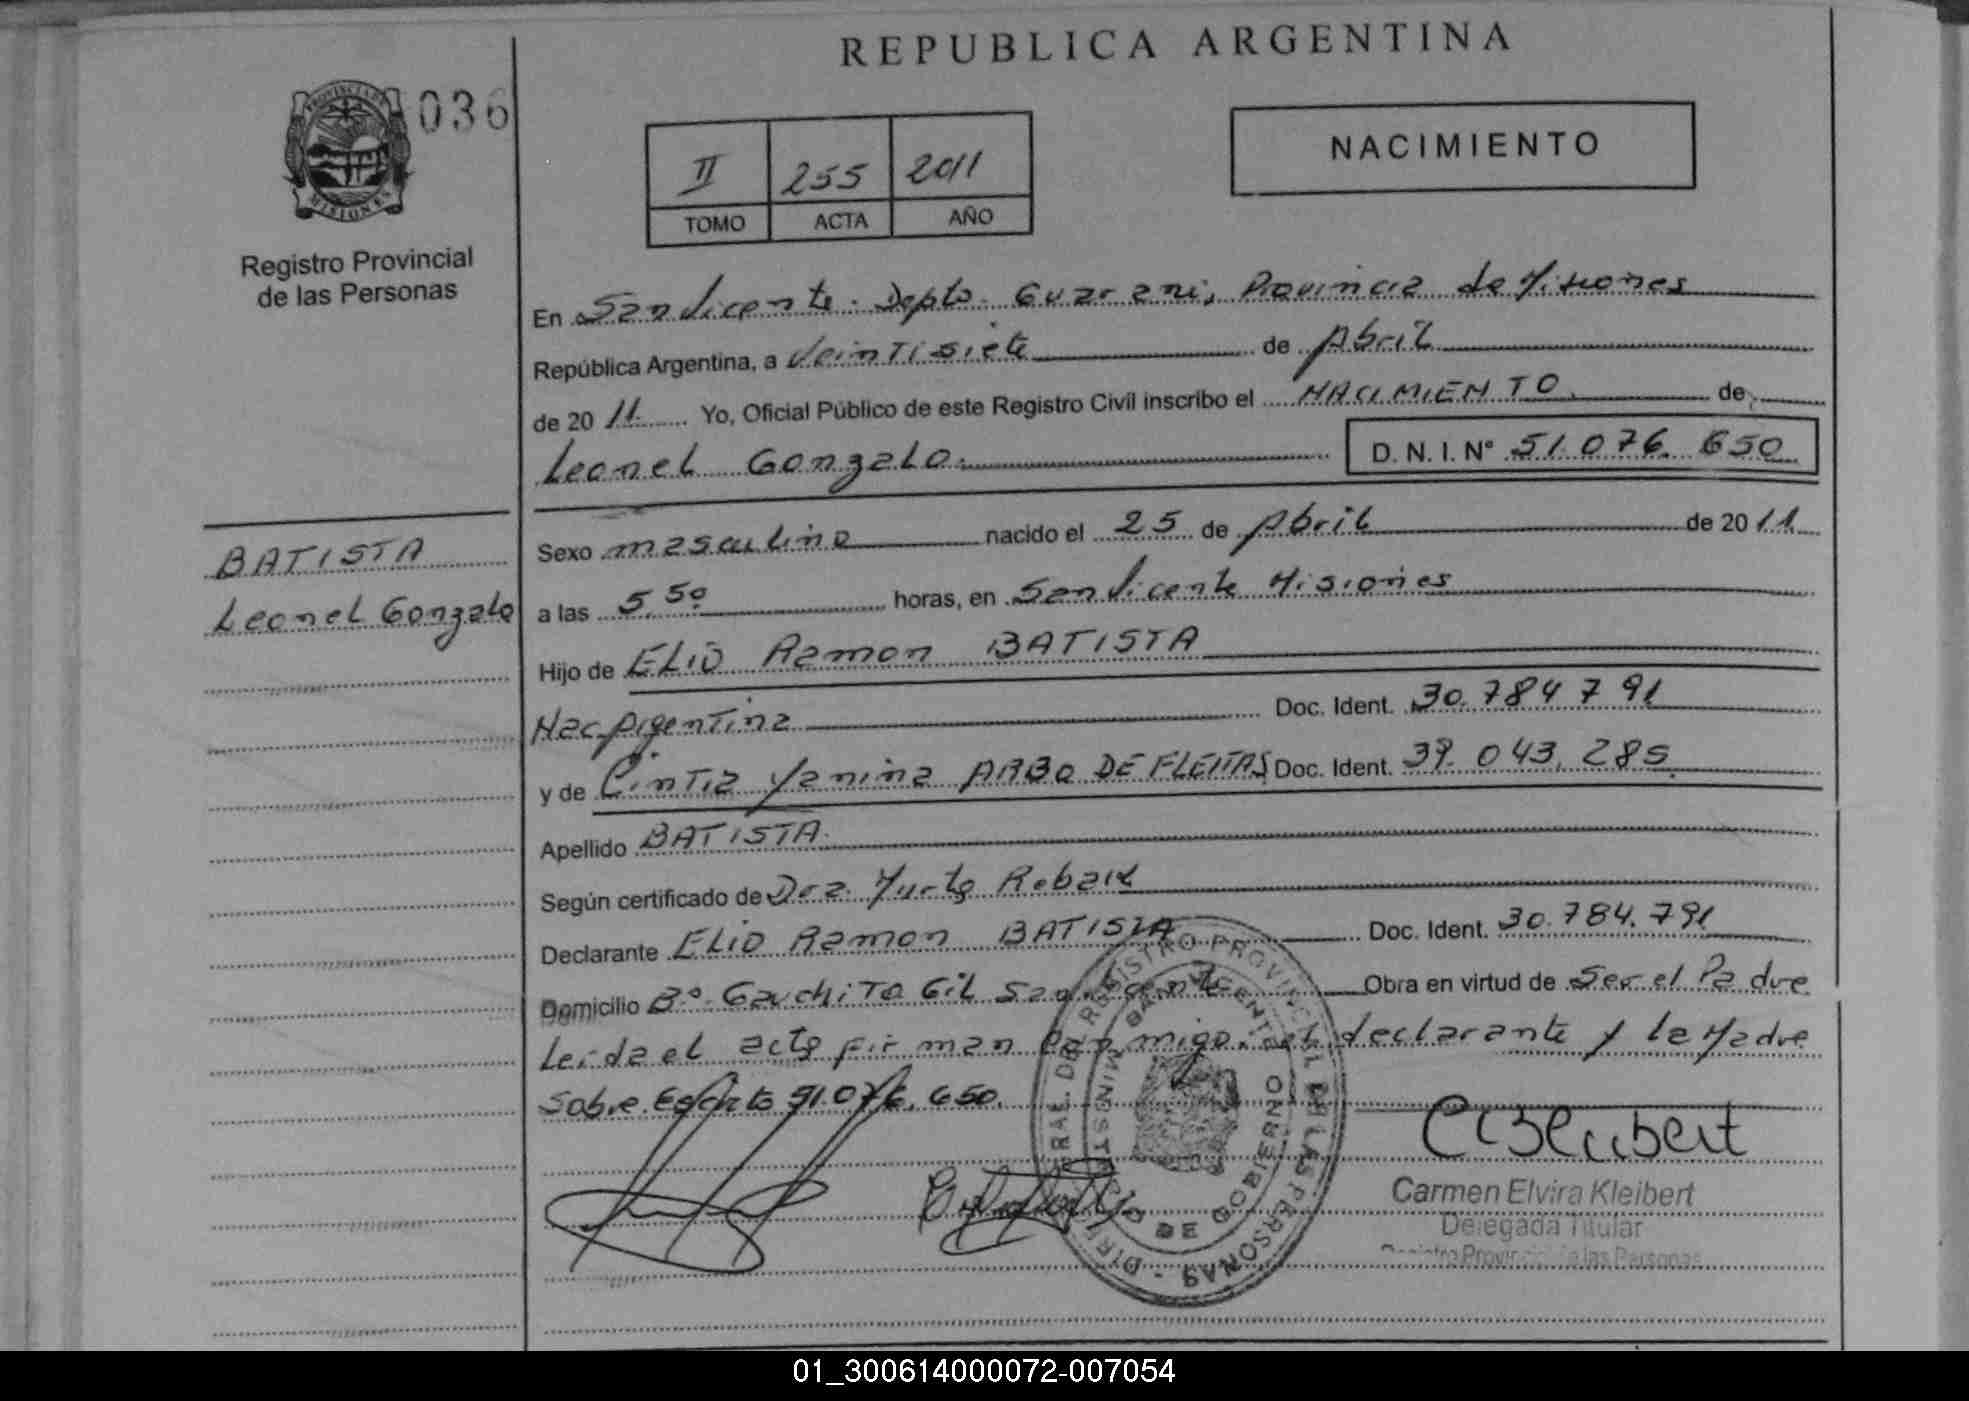 REPUBLICA ARGENTINA
PROVINCIA DE
MISIONES
036
Registro Provincial
de las Personas
II 255 2011
TOMO ACTA AÑO
NACIMIENTO
En San Vicente. Depto. Guarani, Provincia de Misiones
República Argentina, a Veintisiete de Abril
de 20 11 Yo, Oficial Público de este Registro Civil inscribo el NACIMIENTO de
Leonel Gonzalo. D. N. I. N° 51.076.650
BATISTA
Leonel Gonzalo
Sexo masculino nacido el 25 de Abril de 20 11
a las 5.50 horas, en San Vicente Misiones
Hijo de ELIO Ramon BATISTA
Nac. Argentina Doc. Ident. 30.784 791
y de Cintia Yanina ARBO DE FLEITAS Doc. Ident. 39.043.285
Apellido BATISTA.
Según certificado de Dra.
Declarante ELIO Ramon BATISTA Doc. Ident. 30.784.791
Domicilio B°. Gauchito Gil San Vicente Obra en virtud de Ser el Padre
Leida el acta firman conmigo. el declarante y la Madre
Sobre Escrito 51.076.650.
Carmen Elvira Kleibert
Delegada Titular
Registro Provincial de las Personas
01_300614000072-007054